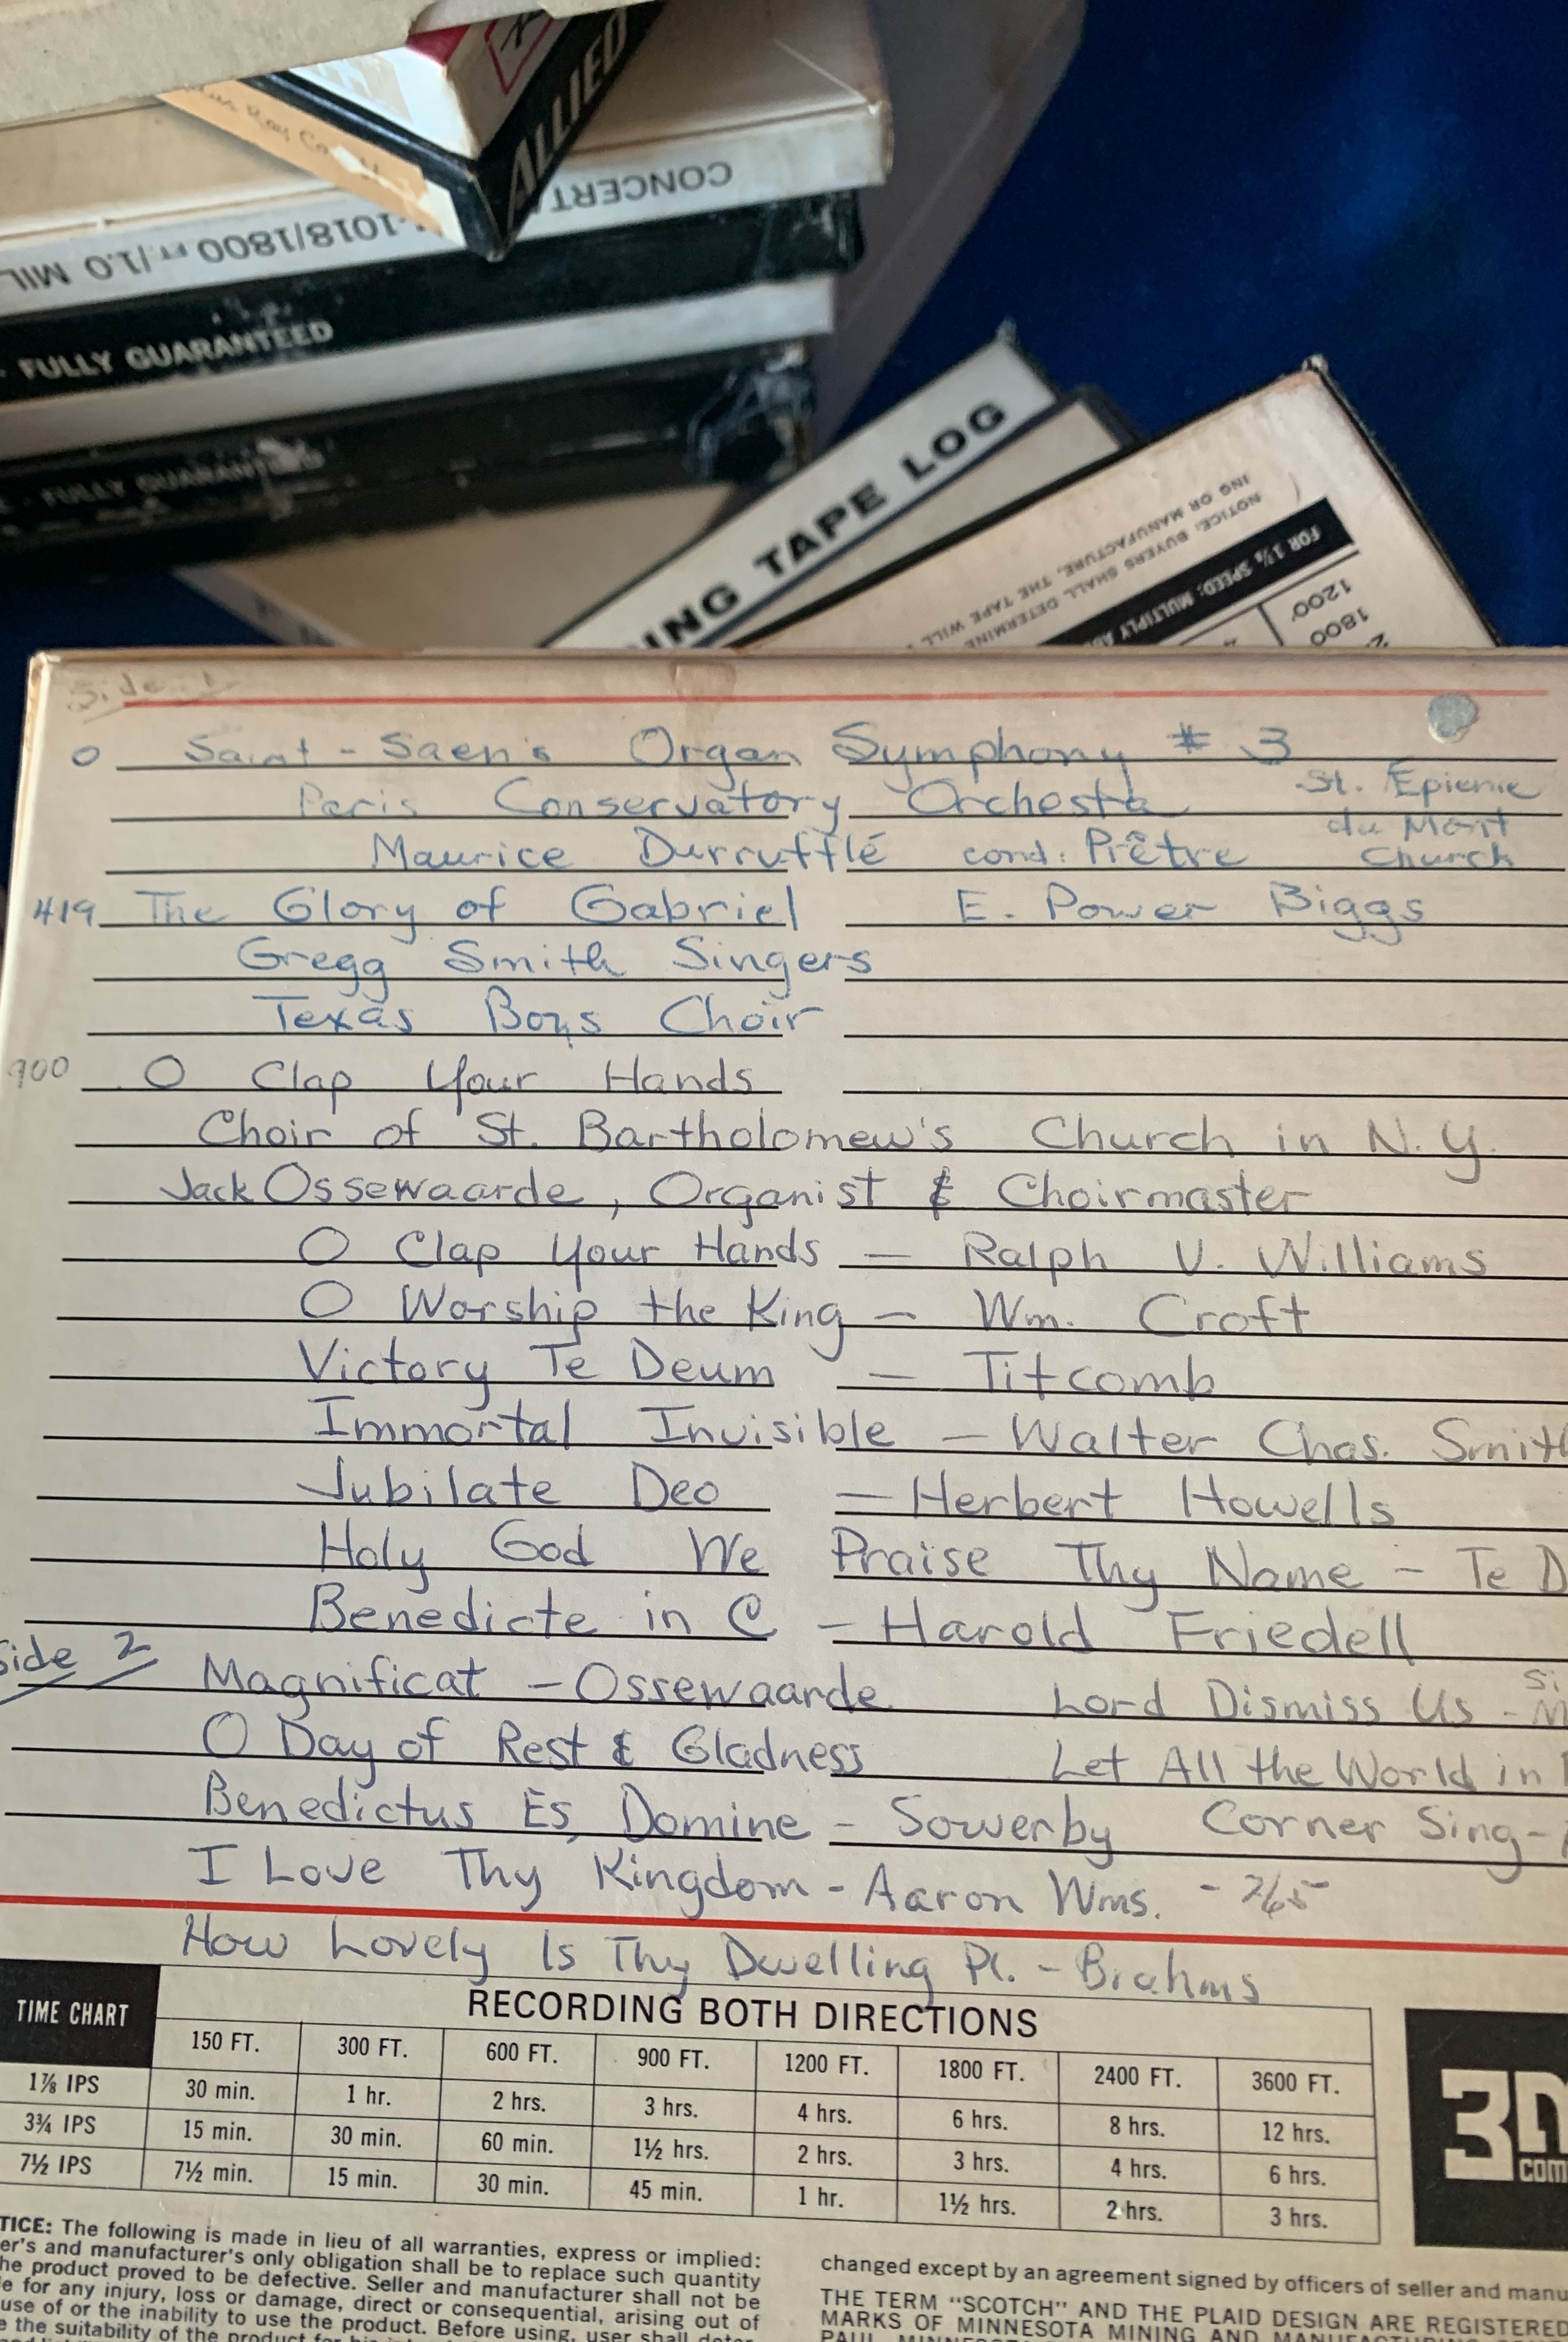 ALLIED
CONCERT
-1018/1800 FT./1.0 MIL
FULLY GUARANTEED
FULLY GUARANTEED
ING TAPE LOG
NOTICE: BUYERS SHALL DETERMINE
ING OR MANUFACTURE. THE TAPE WILL
FOR 1⅞ SPEED: MULTIPLY
1200'
1800
Side 1
0 Saint-Saen's Organ Symphony # 3
Paris Conservatory Orchesta St. Epienie
du Mont
Maurice Durruflé cond: Prêtre Church
419 The Glory of Gabriel E. Power Biggs
Gregg Smith Singers
Texas Boys Choir
900 O Clap Your Hands
Choir of St. Bartholomew's Church in N.Y.
Jack Ossewaarde, Organist & Choirmaster
O Clap Your Hands — Ralph V. Williams
O Worship the King — Wm. Croft
Victory Te Deum — Titcomb
Immortal Invisible — Walter Chas. Smith
Jubilate Deo — Herbert Howells
Holy God We Praise Thy Name - Te D
Benedicte in C - Harold Friedell
Side 2 Magnificat - Ossewaarde Lord Dismiss Us - Si
O Day of Rest & Gladness Let All the World in
Benedictus Es, Domine - Sowerby Corner Sing-
I Love Thy Kingdom - Aaron Wms. - 2/65
How Lovely Is Thy Dwelling Pl. - Brahms
TIME CHART RECORDING BOTH DIRECTIONS
150 FT. 300 FT. 600 FT. 900 FT. 1200 FT. 1800 FT. 2400 FT. 3600 FT.
1⅞ IPS 30 min. 1 hr. 2 hrs. 3 hrs. 4 hrs. 6 hrs. 8 hrs. 12 hrs.
3¾ IPS 15 min. 30 min. 60 min. 1½ hrs. 2 hrs. 3 hrs. 4 hrs. 6 hrs.
7½ IPS 7½ min. 15 min. 30 min. 45 min. 1 hr. 1½ hrs. 2 hrs. 3 hrs.
3M
COM
TICE: The following is made in lieu of all warranties, express or implied:
er's and manufacturer's only obligation shall be to replace such quantity
he product proved to be defective. Seller and manufacturer shall not be
e for any injury, loss or damage, direct or consequential, arising out of
use of or the inability to use the product. Before using, user shall deter
e the suitability of the product for his
changed except by an agreement signed by officers of seller and manu
THE TERM "SCOTCH" AND THE PLAID DESIGN ARE REGISTERED
MARKS OF MINNESOTA MINING AND MANUFACTURING
PAUL, MINNESOTA